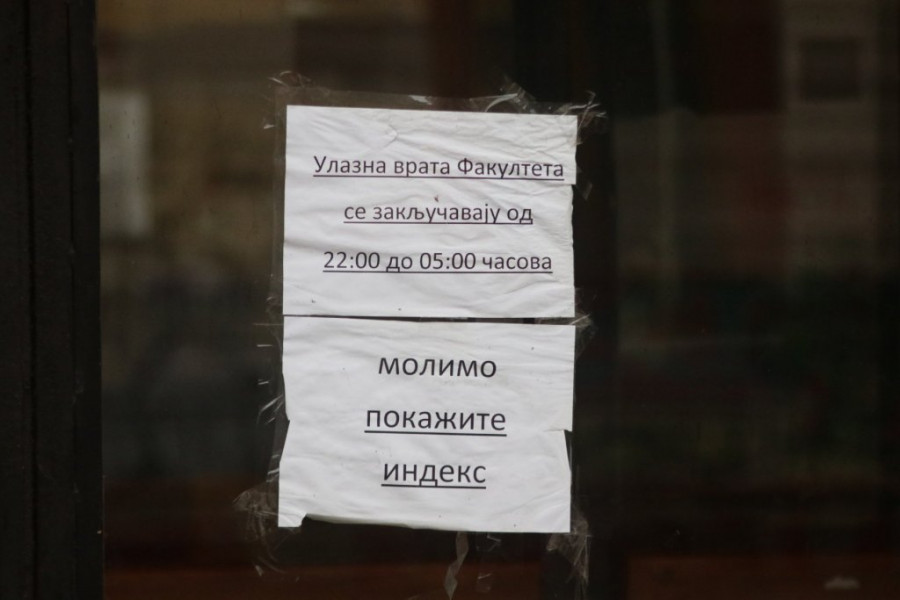 Улазна врата Факултета
се закључавају од
22:00 до 05:00 часова
молимо
покажите
индекс